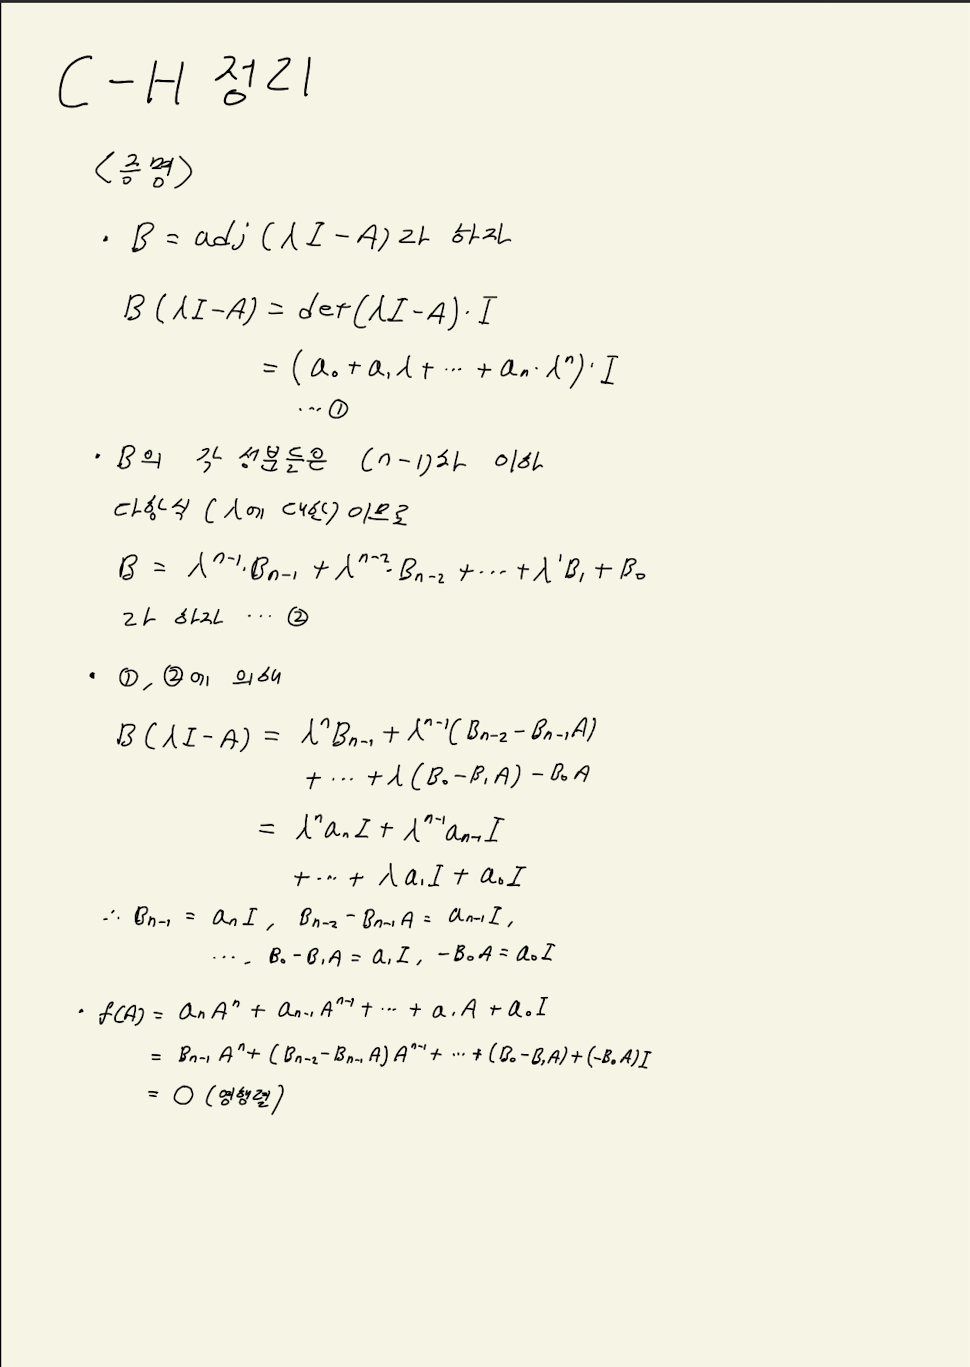 C-H 정리
<증명>
· B = adj (λI-A)라 하자
B(λI-A) = det(λI-A)·I
= (a₀+a₁λ+ ··· +aₙ·λⁿ)·I
···①
· B의 각 성분들은 (n-1)차 이하
다항식 (λ에 대한) 이므로
B = λⁿ⁻¹·Bₙ₋₁ + λⁿ⁻²·Bₙ₋₂ + ··· + λ¹B₁ + B₀
라 하자 ··· ②
· ①, ②에 의해
B(λI-A) = λⁿBₙ₋₁ + λⁿ⁻¹(Bₙ₋₂-Bₙ₋₁A)
+ ··· +λ(B₀-B₁A) -B₀A
= λⁿaₙI + λⁿ⁻¹aₙ₋₁I
+ ··· + λa₁I + a₀I
∴ Bₙ₋₁ = aₙI, Bₙ₋₂-Bₙ₋₁A = aₙ₋₁I,
···, B₀-B₁A = a₁I, -B₀A = a₀I
· f(A) = aₙAⁿ + aₙ₋₁Aⁿ⁻¹ + ··· + a₁A + a₀I
= Bₙ₋₁Aⁿ + (Bₙ₋₂-Bₙ₋₁A)Aⁿ⁻¹ + ··· + (B₀-B₁A)+(-B₀A)I
= O (영행렬)